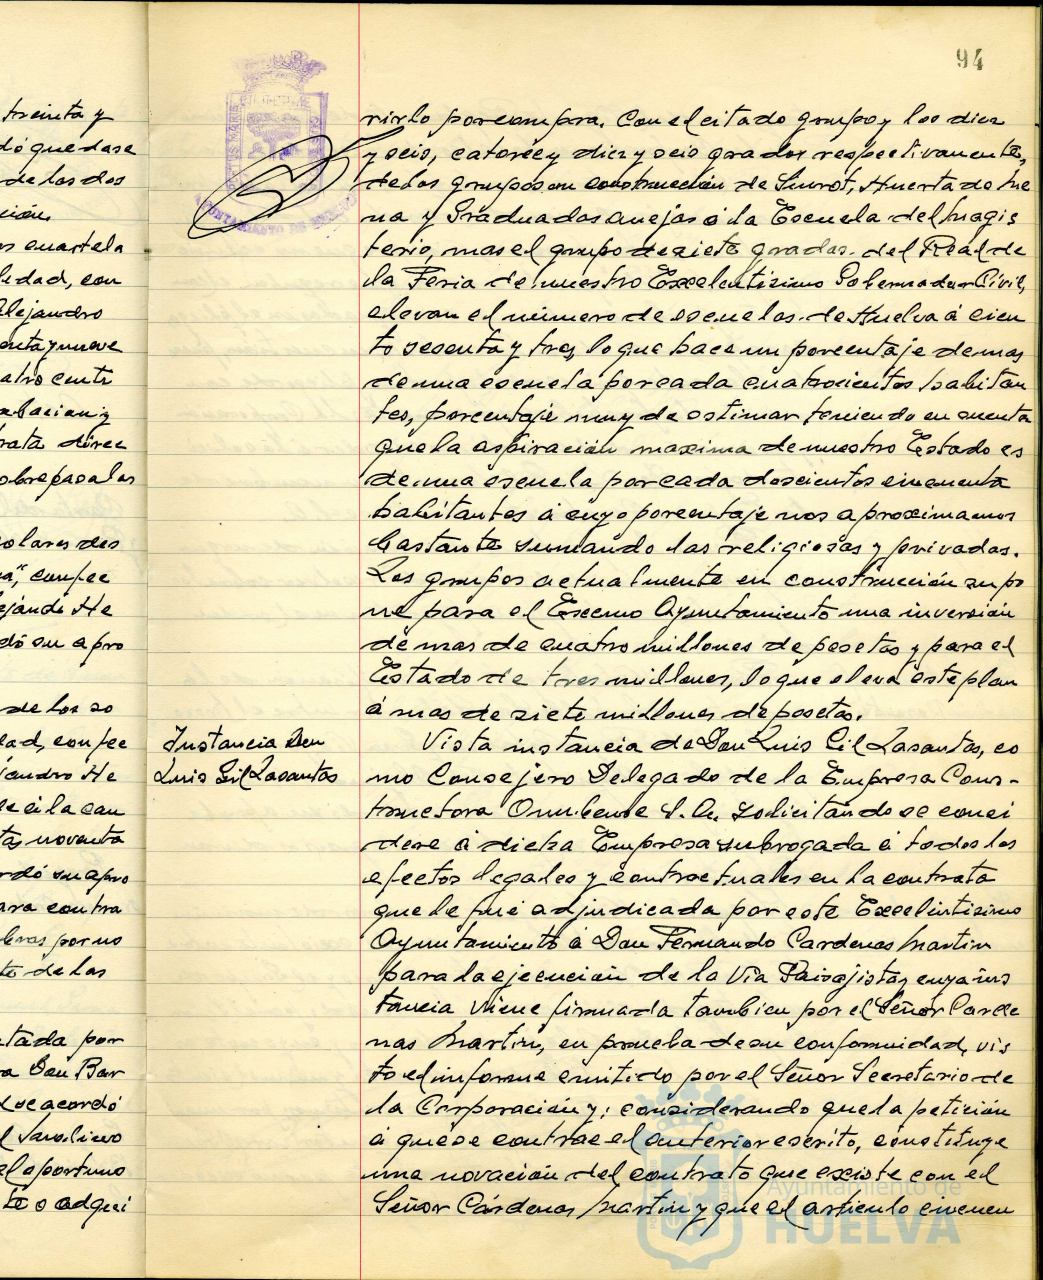 94
treinta y
dó quedase
de los dos
ción
cuartela
ledad, con
Alejandro
enta y nueve
atro centi
bacion y
rata direc
obrepasa las
olares des
", confec
ejando He
dó su apro
de los so
dad, confec
jandro He
de a la can
tas noventa
rdó su apro
ara contra
bras por no
te de las
tada por
Don Bar
se acordó
el oportuno
te o adqui
rirlo por compra. Con el citado grupo y los diez
y seis, catorce y diez y seis grados respectivamente,
de los grupos en construcción de Sunot, Huerta de Me
na y Graduadas anejas á la Escuela del Magis
terio, mas el grupo de siete grados del Real de
la Feria de nuestro Excelentisimo Gobernador Civil,
elevan el número de escuelas de Huelva á cien
to sesenta y tres, lo que hace un porcentaje de mas
de una escuela por cada cuatrocientos habitan
tes, porcentaje muy de estimar teniendo en cuenta
que la aspiración maxima de nuestro Estado es
de una escuela por cada doscientos cincuenta
habitantes á cuyo porcentaje nos aproximamos
bastante sumando las religiosas y privadas.
Los grupos actualmente en construcción supo
ne para el Excmo Ayuntamiento una inversión
de mas de cuatro millones de pesetas y para el
Estado de tres millones, lo que eleva este plan
á mas de siete millones de pesetas.
Instancia Don
Luis Gil Lasantas
Vista instancia de Don Luis Gil Lasantas, co
mo Consejero Delegado de la Empresa Cons-
tructora Onubense S.A. solicitando se consi
dere á dicha Empresa subrogada á todos los
efectos legales y contractuales en la contrata
que le fué adjudicada por este Excelentisimo
Ayuntamiento á Don Fernando Cardenas Martin
para la ejecución de la Via Paisajista, cuya ins
tancia viene firmada tambien por el Señor Carde
nas Martin, en prueba de su conformidad, vis
to el informe emitido por el Señor Secretario de
la Corporación y; considerando que la petición
á que se contrae el anterior escrito, constituye
una novación del contrato que existe con el
Señor Cárdenas Martin y que el articulo cincuen
Ayuntamiento de
HUELVA